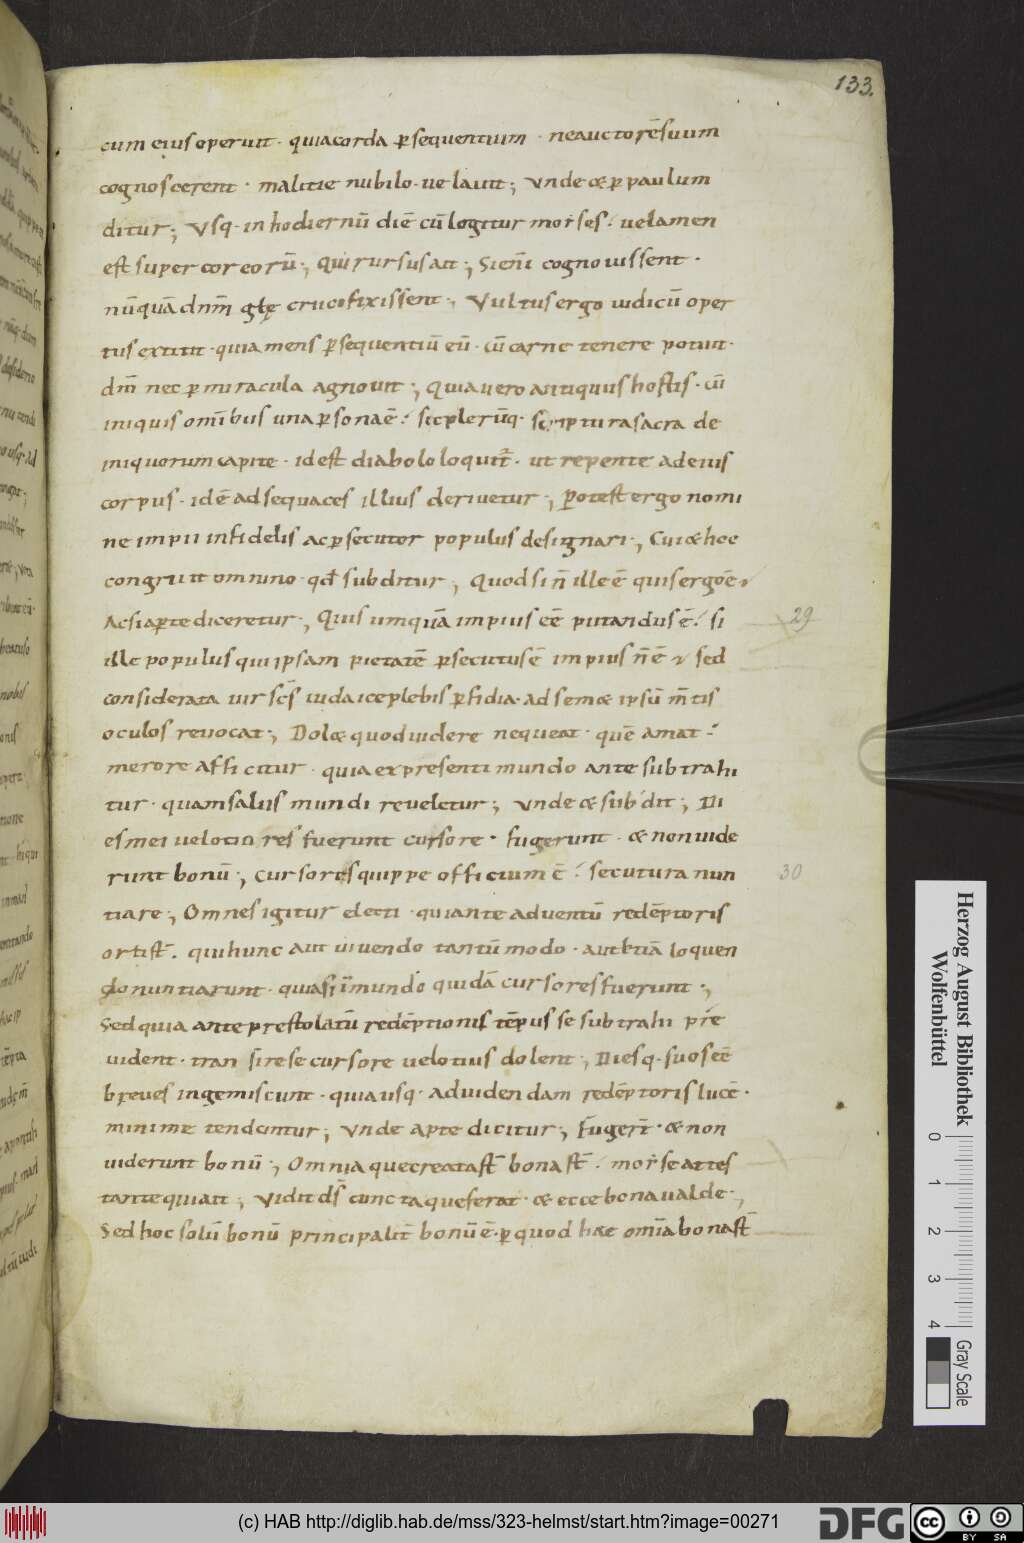 133.
cum eius operuit · quia corda ꝑsequentium · ne auctorē suum
cognoscerent · malitie nubilo · uelauit; Vnde & ꝑ paulum
ditur; Vsq· in hodiernū diē cū legitur moises · uelamen
est super cor eorū; Qui rursus ait; Si eni cognouissent ·
nūquā dnm glę crucifixissent; Vultus ergo iudicū oper
tus extitit · quia mens ꝑsequentiū eū · cū carne tenere potuit ·
dm nec ꝑ miracula agnouit; Quia uero antiquus hostis · cū
iniquis omibus una ꝑsona ē · sic plerūq· scriptura sacra de
iniquorum capite · id est diabolo loquit · ut repente ad eius
corpus · idē ad sequaces illius deriuetur; Potest ergo nomi
ne impii infidelis ac ꝑsecutor populus designari; Cui & hoc
congruit omnino · qđ subditur; Quod si n̄ ille ē quis ergo ē
Ac si aꝑte diceretur; Quis umquā impius eē putandus ē · si
29
ille populus qui ipsam pietatē ꝑsecutus ē impius n̄ ē sed
considerata uir scs iudaice plebis ꝑfidia · ad sem& ipsū m̄tis
oculos reuocat; Dol& quod uidere nequeat · quē amat ·
merore afficitur · quia e presenti mundo ante subtrahi
tur · quam salus mundi reueletur; Vnde & subdit; Di
es mei uelociores fuerunt cursore · fugerunt · & non uide
runt bonū; Cursoris quippe officium ē · secutura nun
30
tiare; Omnes igitur electi · qui ante aduentū redēptoris
orti st̄ · qui hunc aut uiuendo tantū modo · aut &iā loquen
do nuntiarunt · quasi i mundo quidā cursores fuerunt;
Sed quia ante prestolatū redēptionis tēpus se subtrahi pre
uident · transire se cursore uelotius dolent; Diesq· suos eē
breues ingemiscunt · quia usq· ad uidendam redēptoris lucē ·
minime tenduntur; Vnde apte dicitur; Fugert · & non
uiderunt bonū; Omnia que creata st̄ bona st̄ · moise attes
tante qui ait; Vidit ds cuncta que ferat · & ecce bona ualde;
Sed hoc solū bonū principalit bonū ē · ꝑ quod hæc omia bona st̄
Herzog August Bibliothek
Wolfenbüttel
0
1
2
3
4
Gray Scale
(c) HAB http://diglib.hab.de/mss/323-helmst/start.htm?image=00271
DFG
cc
BY SA